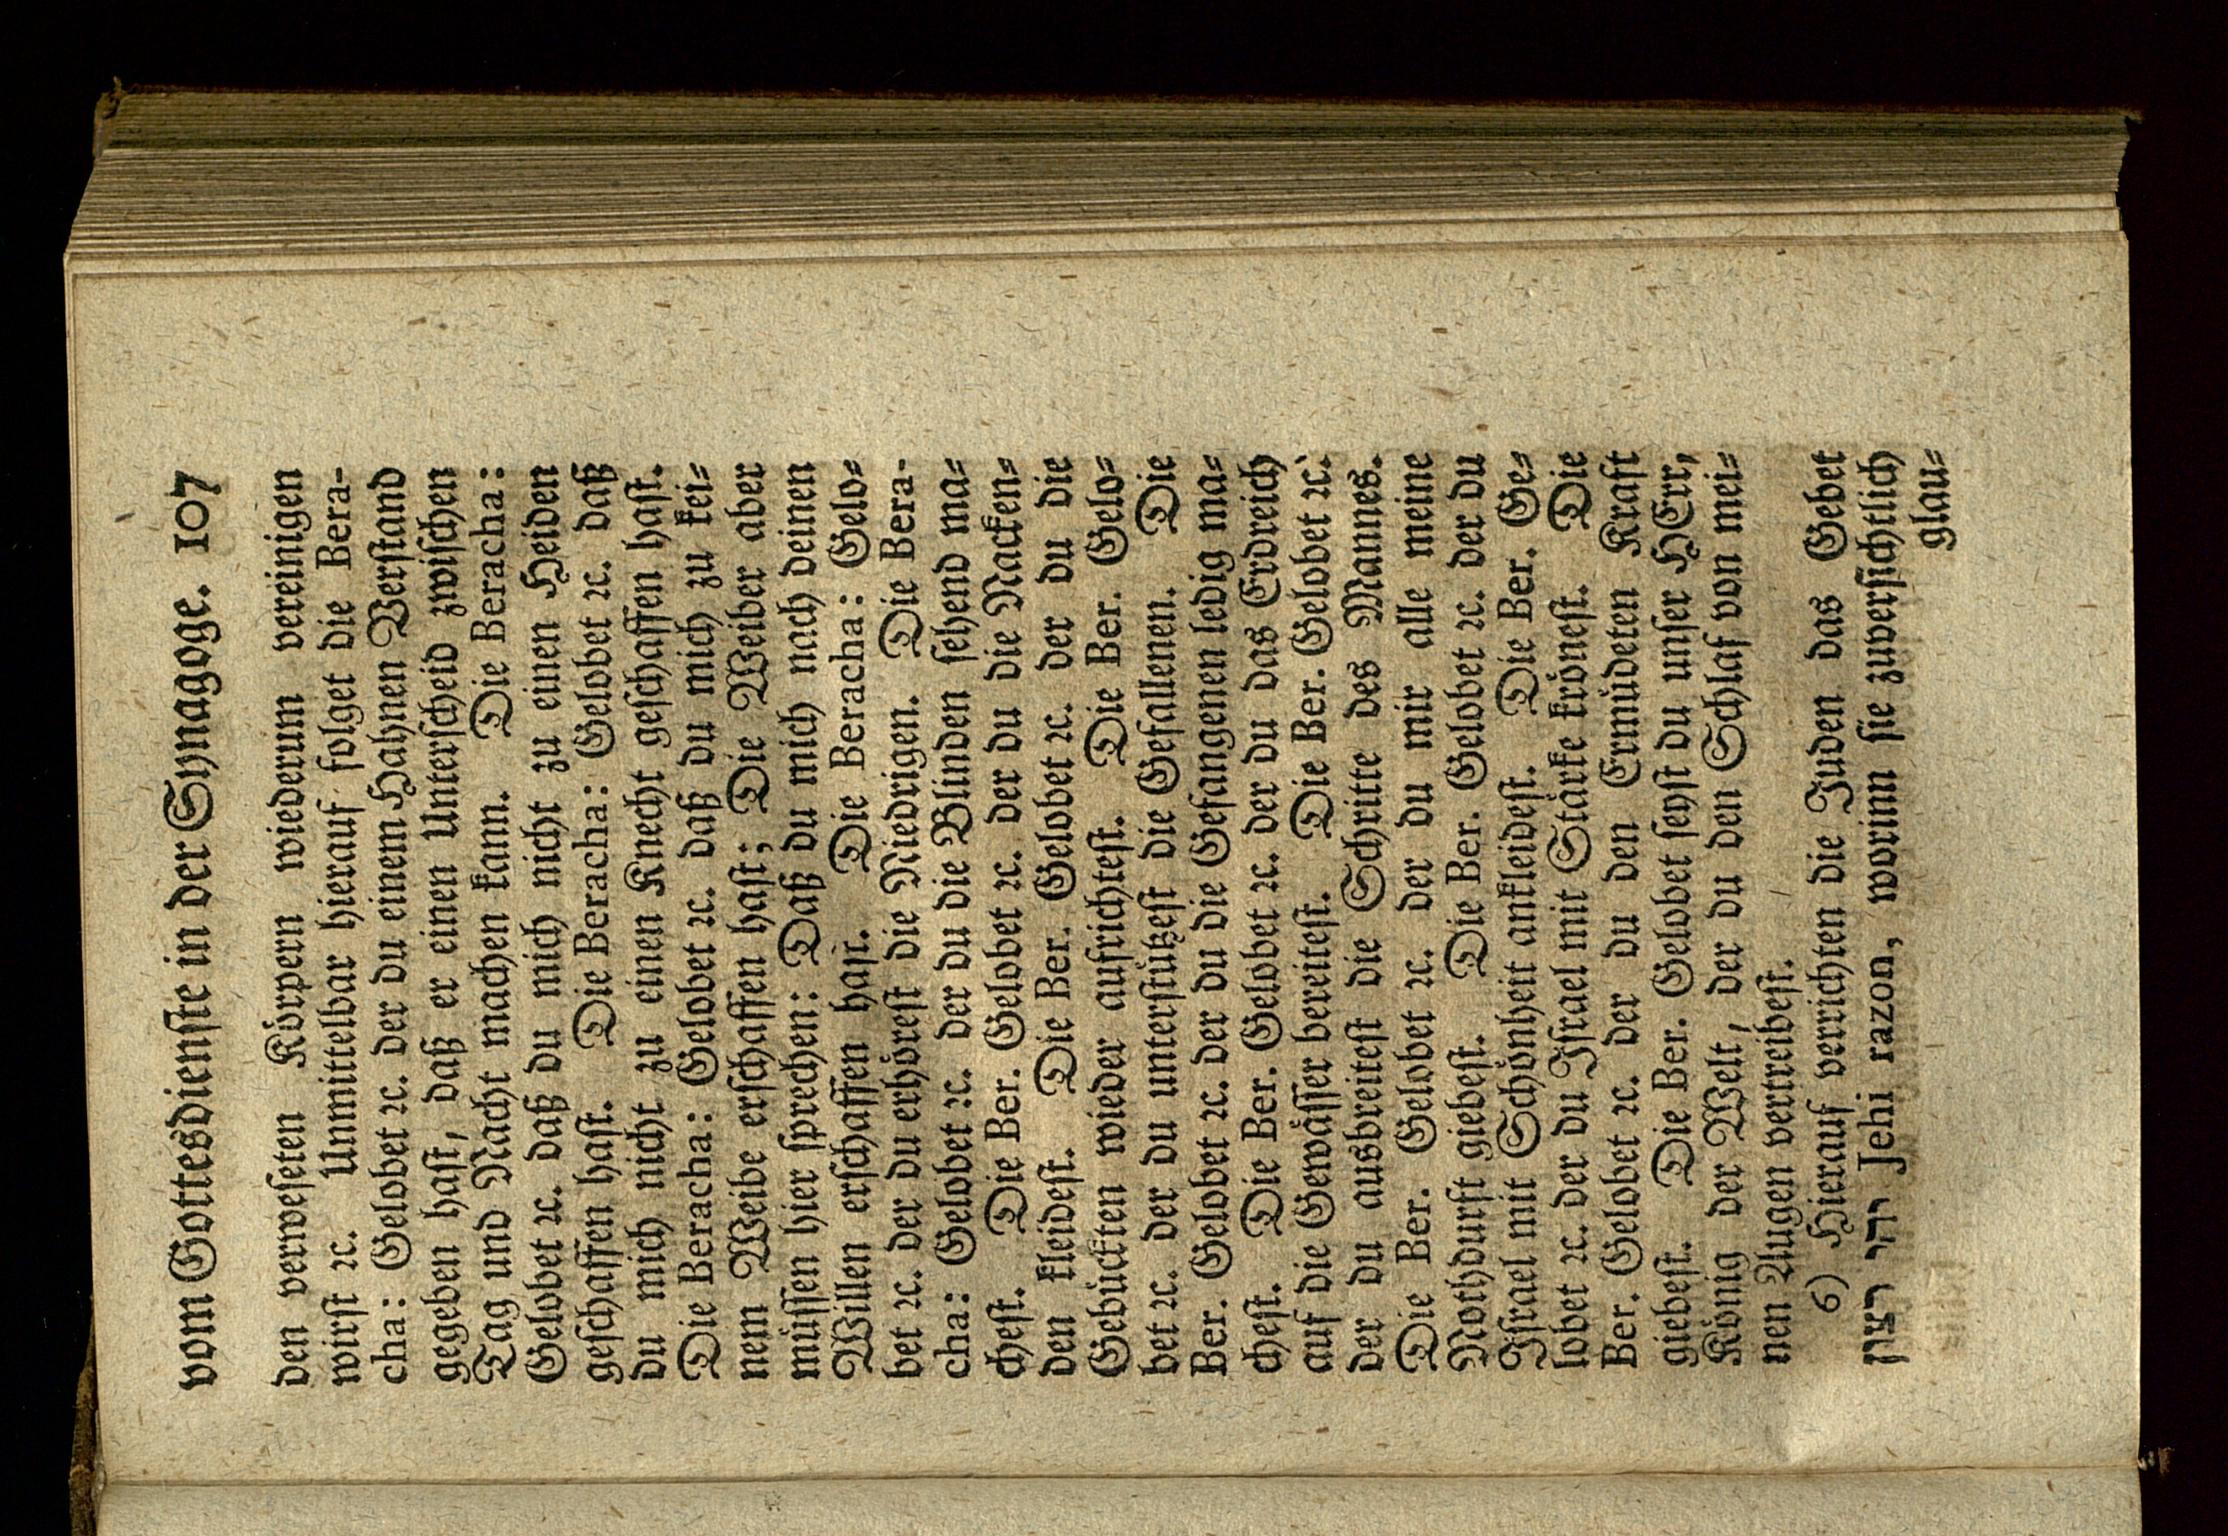 vom Gottesdienste in der Synagoge. 107
den verweseten Körpern wiederum vereinigen
wirst ꝛc. Unmittelbar hierauf folget die Bera-
cha: Gelobet ꝛc. der du einem Hahnen Verstand
gegeben hast, daß er einen Unterscheid zwischen
Tag und Nacht machen kann. Die Beracha:
Gelobet ꝛc. daß du mich nicht zu einen Heiden
geschaffen hast. Die Beracha: Gelobet ꝛc. daß
du mich nicht zu einen Knecht geschaffen hast.
Die Beracha: Gelobet ꝛc. daß du mich zu kei-
nem Weibe erschaffen hast; Die Weiber aber
müssen hier sprechen: Daß du mich nach deinen
Willen erschaffen hast. Die Beracha: Gelo-
bet ꝛc. der du erhörest die Niedrigen. Die Bera-
cha: Gelobet ꝛc. der du die Blinden sehend ma-
chest. Die Ber. Gelobet ꝛc. der du die Nacken-
den kleidest. Die Ber. Gelobet ꝛc. der du die
Gebückten wieder aufrichtest. Die Ber. Gelo-
bet ꝛc. der du unterstützest die Gefallenen. Die
Ber. Gelobet ꝛc. der du die Gefangenen ledig ma-
chest. Die Ber. Gelobet ꝛc. der du das Erdreich
auf die Gewässer bereitest. Die Ber. Gelobet ꝛc.
der du ausbreitest die Schritte des Mannes.
Die Ber. Gelobet ꝛc. der du mir alle meine
Nothdurft giebest. Die Ber. Gelobet ꝛc. der du
Israel mit Schönheit ankleidest. Die Ber. Ge-
lobet ꝛc. der du Israel mit Stärke krönest. Die
Ber. Gelobet ꝛc. der du den Ermüdeten Kraft
giebest. Die Ber. Gelobet seyst du unser HErr,
König der Welt, der du den Schlaf von mei-
nen Augen vertreibest.
6) Hierauf verrichten die Juden das Gebet
יהי רצון Jehi razon, worinn sie zuversichtlich
glau-